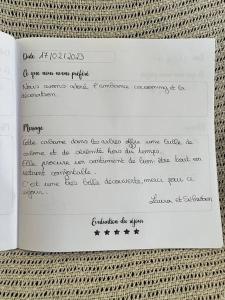 Date 17/02/2023
Ce que nous avons préféré
Nous avons adoré l'ambiance cocooning et la
décoration.
Message
Cette cabane dans les arbres offre une bulle de
calme et de sérénité hors du temps.
Elle procure un sentiment de bien être tout en
restant confortable.
C'est une très belle découverte, merci pour ce
séjour.
Laura et Sébastien
Évaluation du séjour